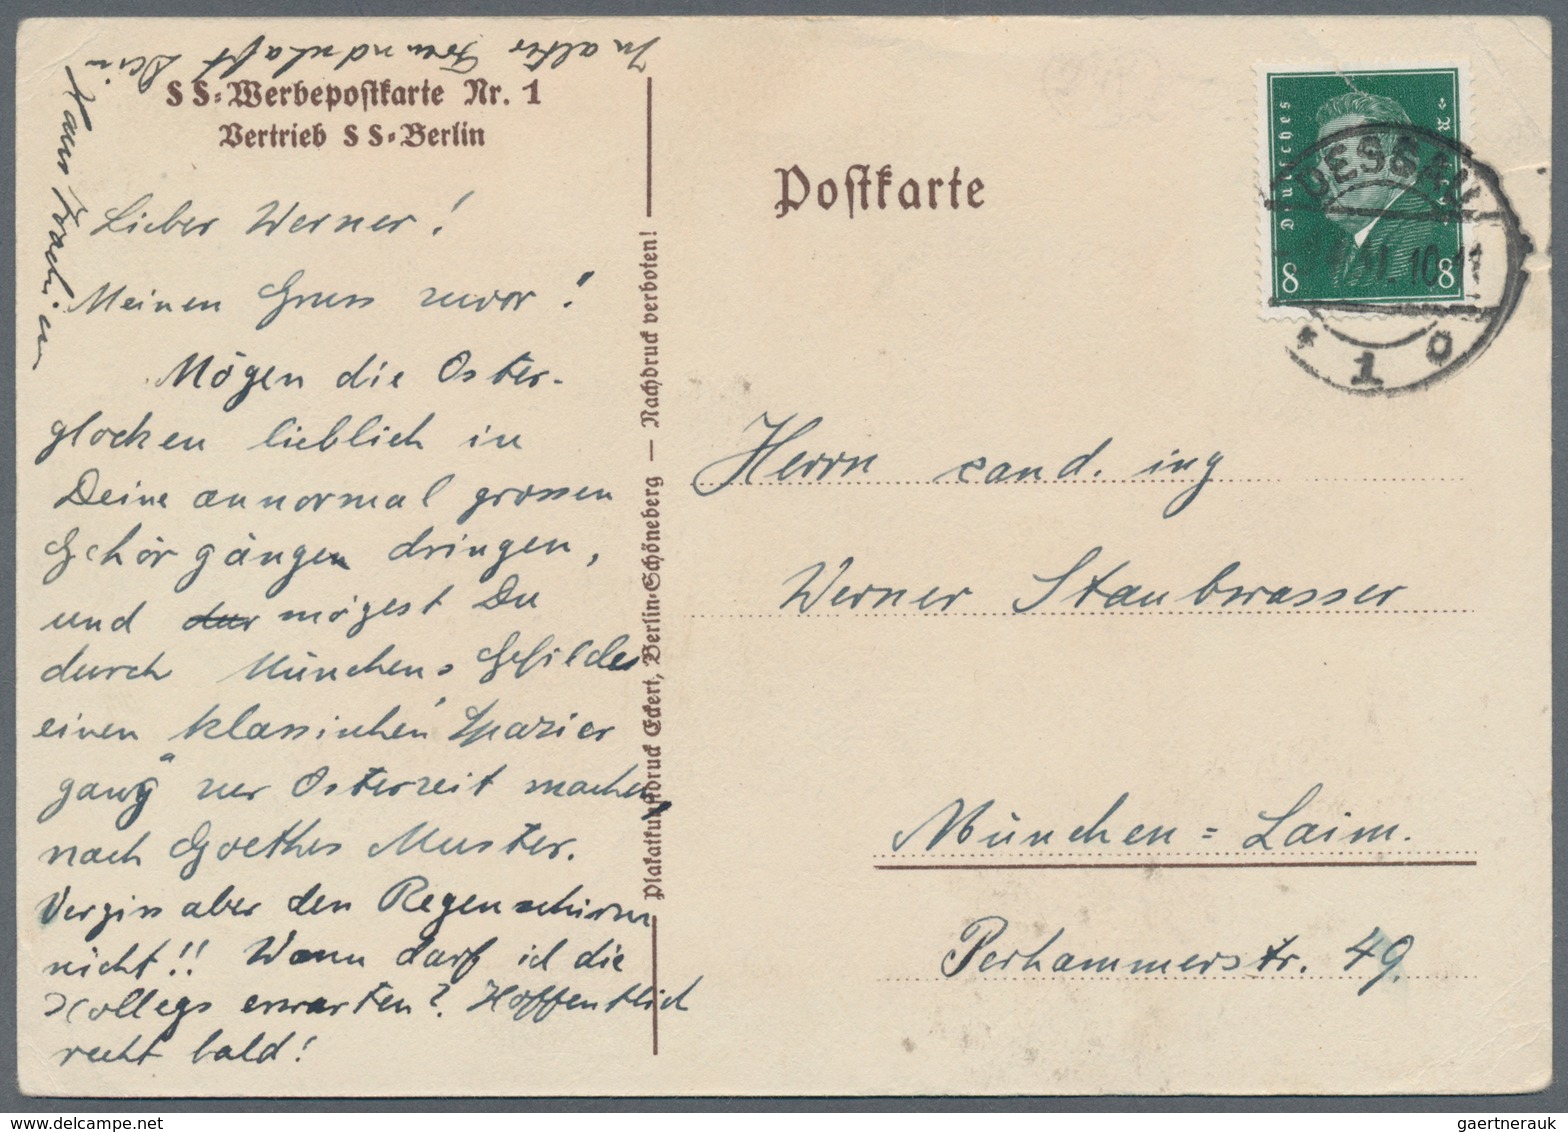 SS-Werbepostkarte Nr. 1
Vertrieb SS-Berlin
Lieber Werner!
Meinen Gruss zuvor!
Mögen die Oster-
glocken lieblich in
Deine annormal grossen
Gehörgängen dringen,
und dur mögest Du
durch Münchens Gefilde
einen "klassischen Spazier
gang" zur Osterzeit machen
nach Goethes Muster.
Vergiss aber den Regenschirm
nicht!! Wann darf ich die
Kollegs erwarten? Hoffentlich
recht bald!
In alter Freundschaft Dein
Hans
Plakatkunstdruck Eckert, Berlin-Schöneberg — Nachdruck verboten!
Postkarte
Deutsches
8 8
DESSAU
10-11
* 1 o
Herrn cand. ing
Werner Staubwasser
München-Laim.
Perhammerstr. 49.
gaertnerauk.com